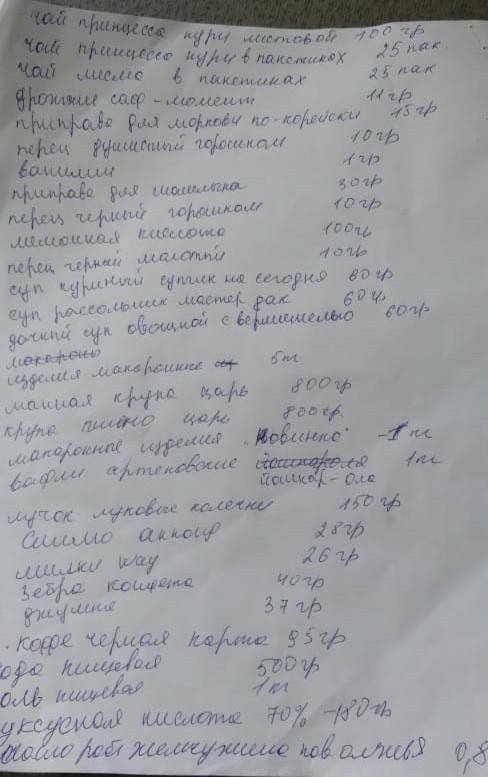 чай принцесса нури листовой 100гр
чай принцесса нури в пакетиках 25 пак.
чай лисма в пакетиках 25 пак
дрожжи саф-момент 11гр
приправа для моркови по-корейски 15гр
перец душистый горошком 10гр
ванилин 1гр
приправа для шашлыка 30гр
перец черный горошком 10гр
лимонная кислота 100гр
перец черный молотый 10гр
суп куриный супчик на сегодня 60гр
суп рассольник мастер дак 60гр
дачный суп овощной с вермишелью 60гр
макароны
изделия макаронные 5кг
манная крупа царь 800гр
крупа пшено царь 800гр.
макаронные изделия "Новинка" -1кг
вафли артековские 1кг
йошкар-ола
лучок луковые колечки 150гр
28гр
милки way 26гр
зебра конфета 40гр
37гр
кофе черная карта 95гр
ода пищевая 500гр
оль пищевая 1кг
уксусная кислота 70% -180гр
жемчужина поволжья 0,8